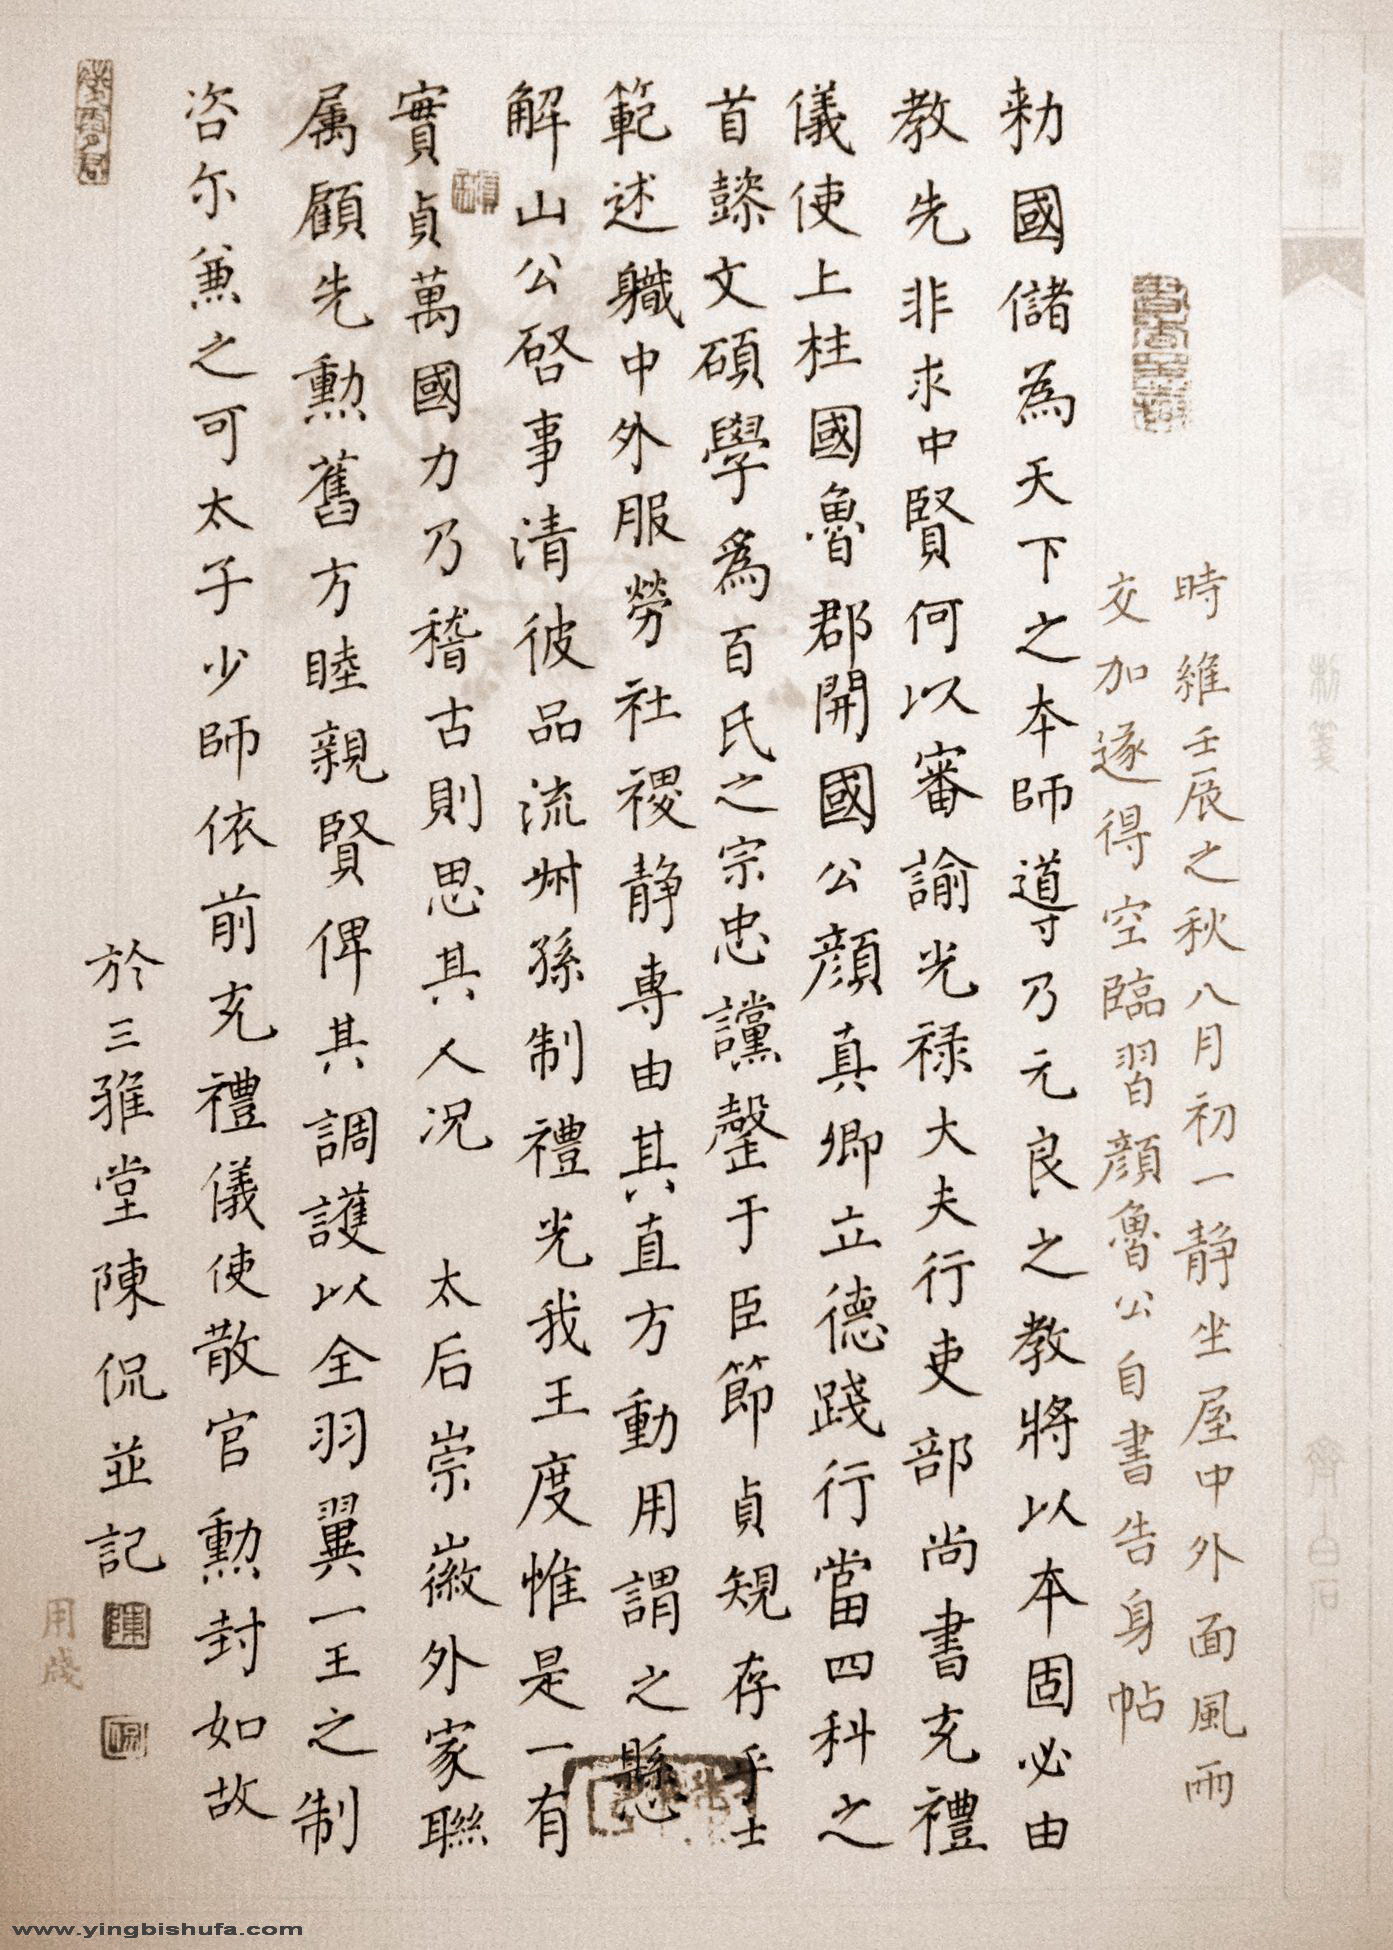 時維壬辰之秋八月初一静坐屋中外面風雨
交加遂得空臨習顔魯公自書告身帖
勑國儲為天下之本師導乃元良之教將以本固必由
教先非求中賢何以審諭光禄大夫行吏部尚書充禮
儀使上柱國魯郡開國公顔真卿立德踐行當四科之
首懿文碩學爲百氏之宗忠讜罄于臣節貞規存乎士
範述職中外服勞社稷静專由其直方動用謂之懸
解山公啓事清彼品流叔孫制禮光我王度惟是一有
實貞萬國力乃稽古則思其人况 太后崇徽外家聯
属顧先勳舊方睦親賢俾其調護以全羽翼一王之制
咨尔兼之可太子少師依前充禮儀使散官勳封如故
於三雅堂陳侃並記
用箋
齊白石
www.yingbishufa.com